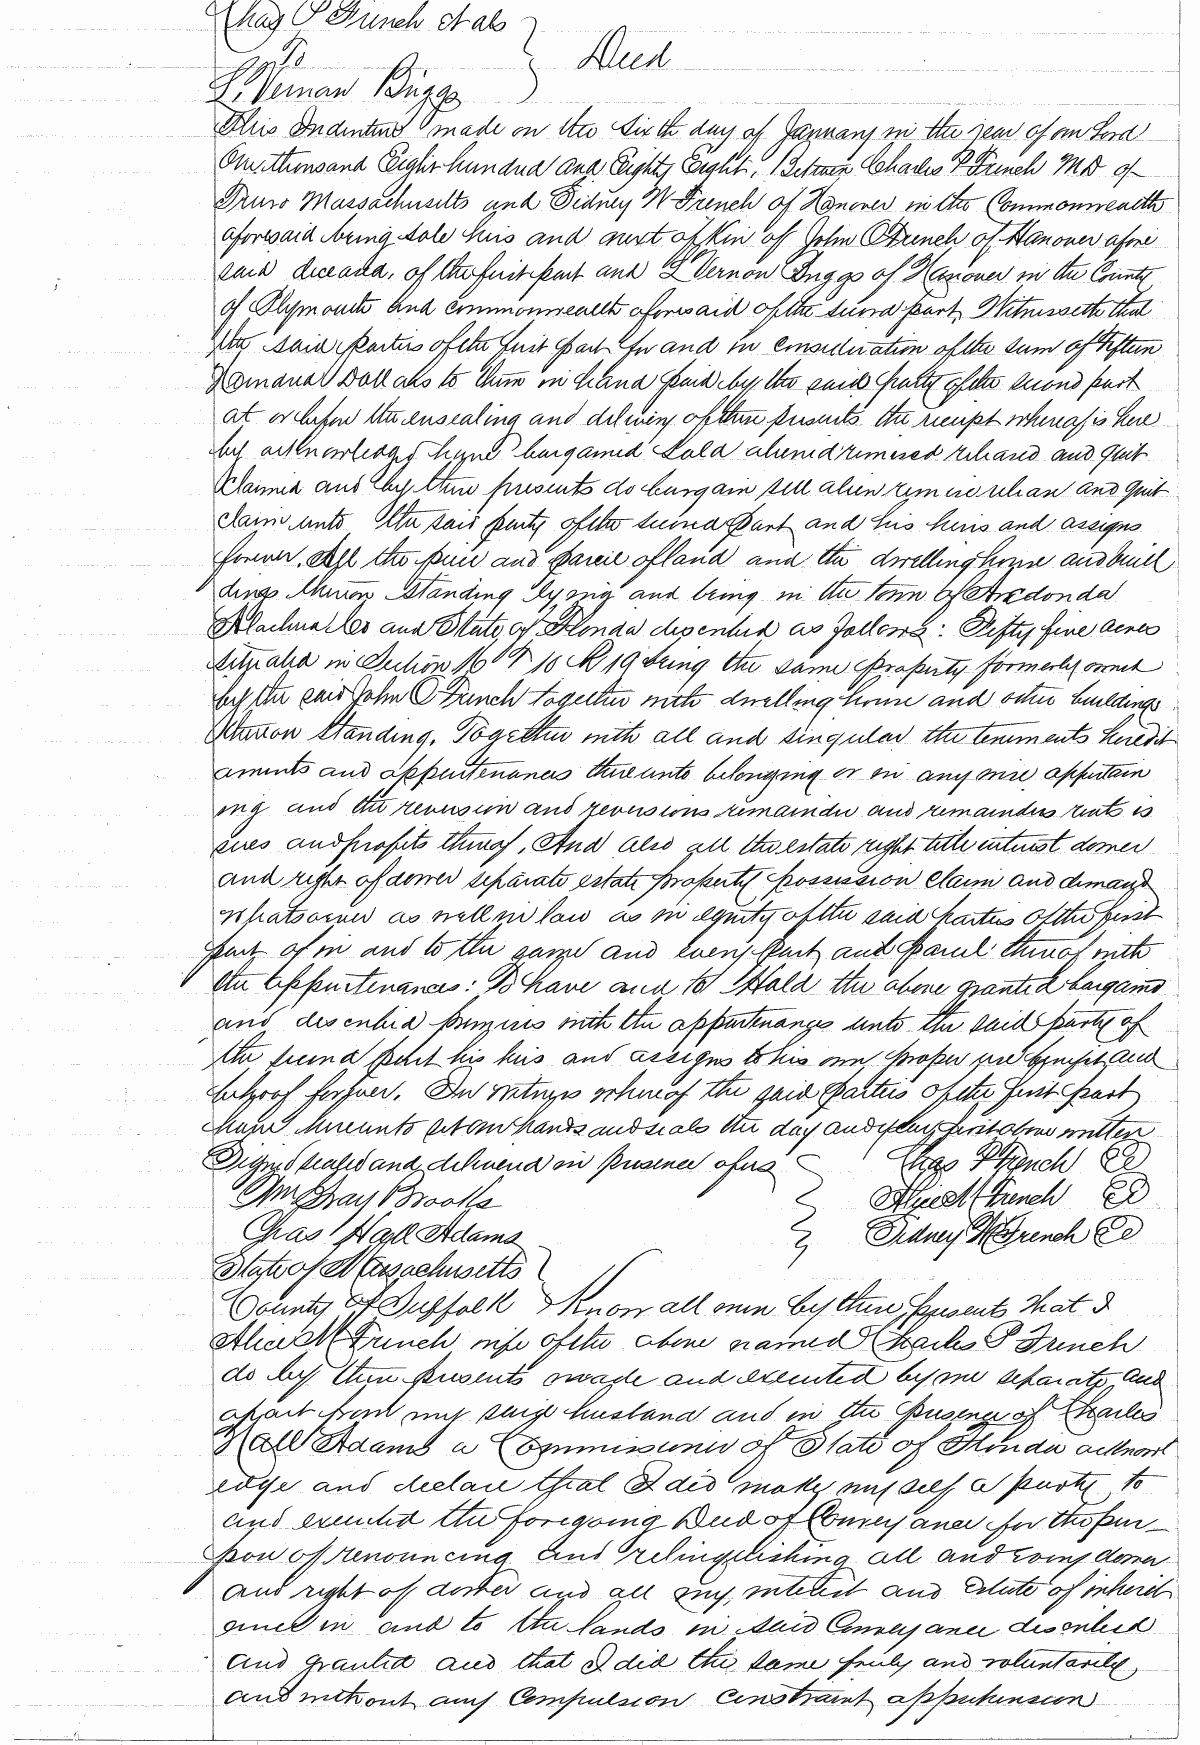 Chas P French et als
To } Deed
L. Vernan Briggs
This Indenture made on the sixth day of January in the year of our Lord
One thousand Eight hundred and Eighty Eight, Between Charles P French MD of
Truro Massachusetts and Sidney W French of Hanover in the Commonwealth
aforesaid being sole heirs and next of kin of John O French of Hanover afore
said deceased, of the first part and L Vernon Briggs of Hanover in the County
of Plymouth and commonwealth aforesaid of the second part, Witnesseth that
the said parties of the first part for and in consideration of the sum of Fifteen
Hundred Dollars to them in hand paid by the said party of the second part
at or before the ensealing and delivery of these presents the receipt whereof is here
by acknowledged have bargained Sold aliened remised released and quit
claimed and by these presents do bargain sell alien remise release and quit
claim unto the said party of the second part and his heirs and assigns
forever. All the piece and parcel of land and the dwelling house and buil
dings thereon standing lying and being in the town of Arredonda
Alachua Co and State of Florida described as follows: Fifty five acres
situated in Section 16 T 10 R 19 being the same property formerly owned
by the said John O French together with dwelling house and other buildings
thereon standing. Together with all and singular the tenements heredit
aments and appurtenances thereunto belonging or in any wise appertain
ing and the reversion and reversions remainder and remainders rents is
sues and profits thereof, And also all the estate right title interest dower
and right of dower separate estate property possession claim and demand
whatsoever as well in law as in equity of the said parties of the first
part of in and to the same and every part and parcel thereof with
the appurtenances: To have and to Hold the above granted bargained
and described premises with the appurtenances unto the said party of
the second part his heirs and assigns to his own proper use benefit and
behoof forever. In witness whereof the said parties of the first part
have hereunto set our hands and seals the day and year first above written
Signed sealed and delivered in presence of us } Chas P French
Wm Gray Brooks } Alice M French
Chas Hall Adams } Sidney W French
State of Massachusetts }
County of Suffolk } Know all men by these presents that I
Alice M French wife of the above named Charles P French
do by these presents made and executed by me separate and
apart from my said husband and in the presence of Charles
Hall Adams a Commissioner of State of Florida acknowl
edge and declare that I did make myself a party to
and executed the foregoing Deed of Conveyance for the pur-
pose of renouncing and relinquishing all and every dower
and right of dower and all my interest and estate of inherit
ance in and to the lands in said Conveyance described
and granted and that I did the same freely and voluntarily
and without any Compulsion constraint apprehension